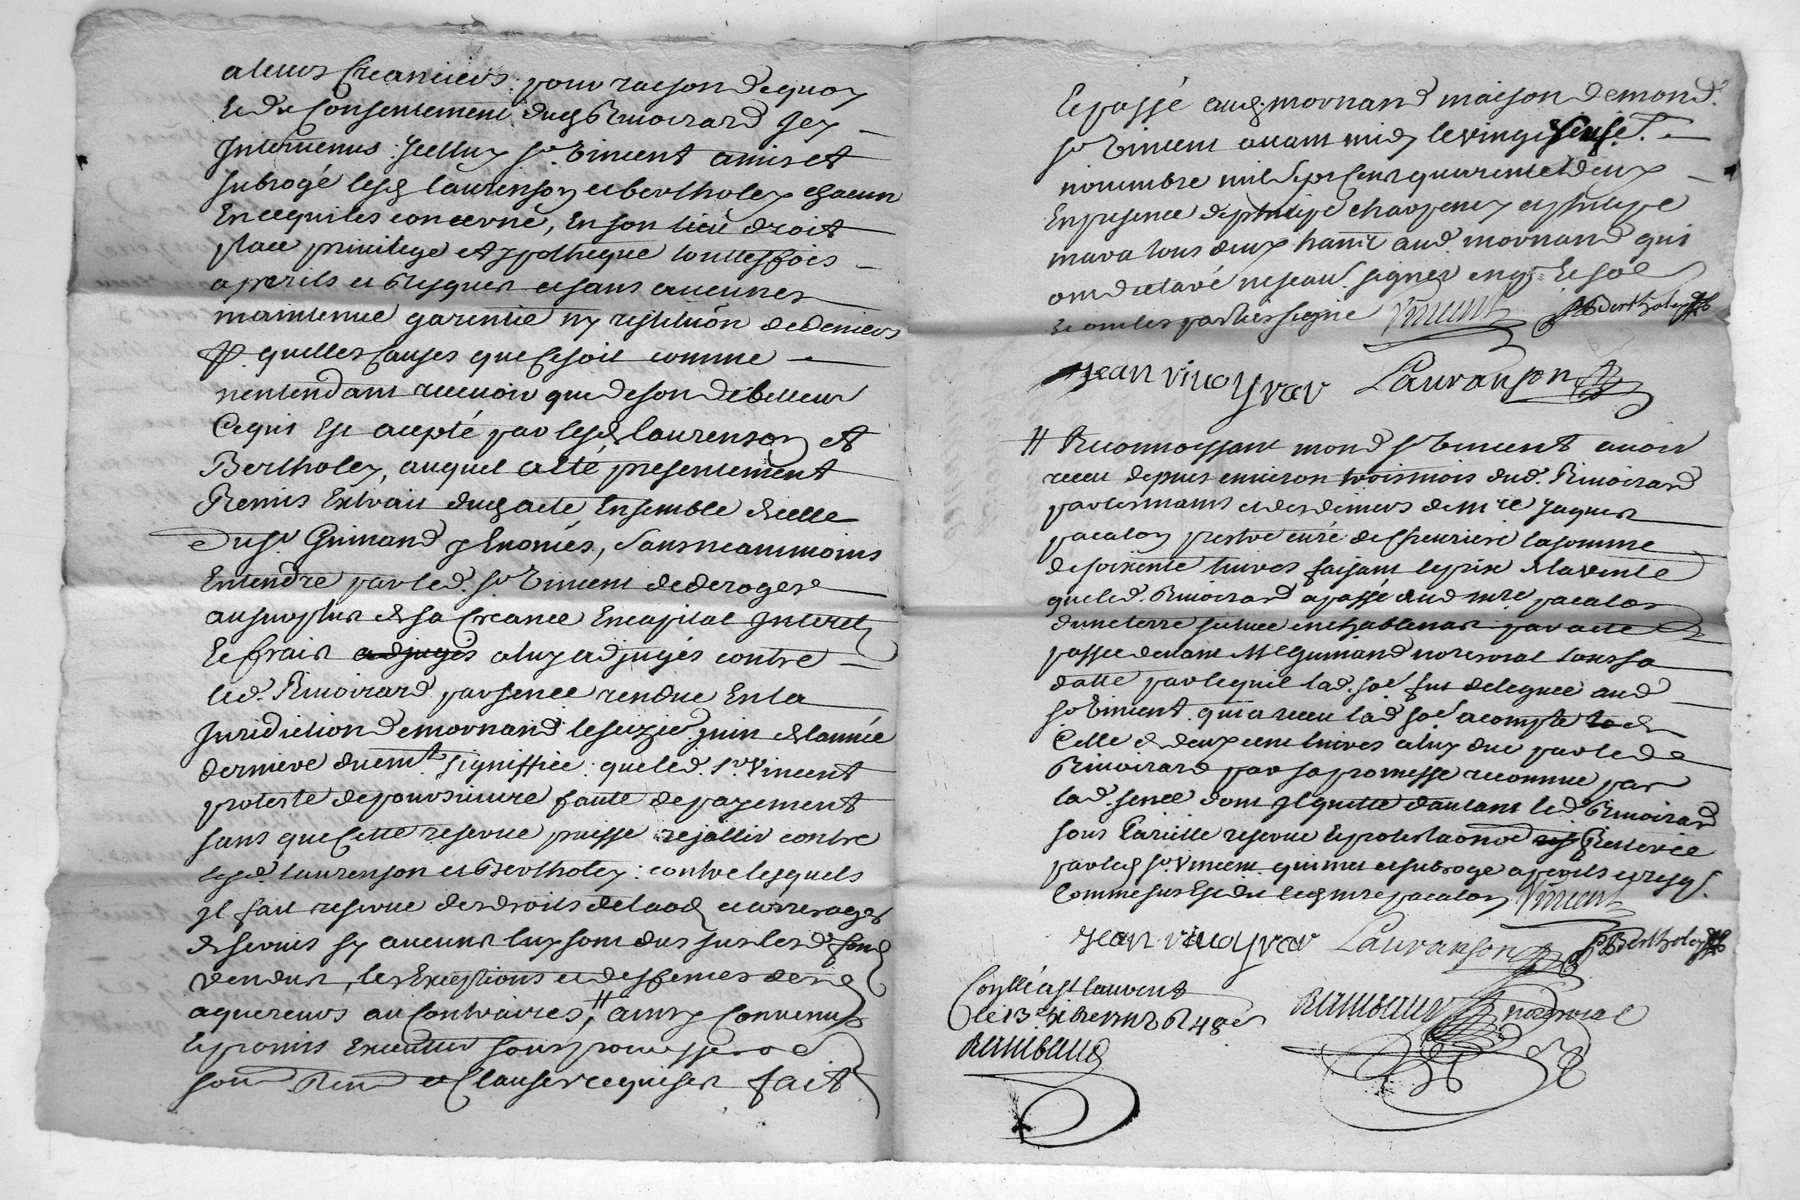 a leurs Creanciers pour raison dequoy
et du Consentement dud Rimoirard Jcy
Jntervenus Jcelluy Sr. Vincent a mis et
subrogé lesd laurenson et bertholey chacun
En cequi les concerne, En son lieu droit
place privilege et ypotheque touttesfois
a perils et Risques et sans aucunes
maintenue garentie ny restitution dedeniers
pr. quelles Causes que ce soit comme
nentendant recevoir que de son debiteur
Cequi Est acepté par lesd laurenson et
Bertholey, auquel a eté presentement
Remis Extrait dud acte Ensemble de celle
du Sr Guinand y Enoncés, sans neammoins
Entendre par led. Sr Vincent de deroger
au surplus de sa Creance En capital Jnterets
Et frais adjugés a luy adjugés contre
led. Rimoirard par senee rendue En la
Juridiction de mornand le seizie. juin de lannée
derniere duemt. signiffiée: que led. Sr. Vincent
proteste depoursuivre faute de payement
sans que Cette reserve puisse rejallir contre
lesd. laurenson et Bertholey: contre lesquels
Jl fait reserve des droits de laods et arrerages
de servis sy aucuns luy sont dus sur lesd. fond
vendus, les Exceptions et deffences desd
aquereurs au Contraires, # ainsy Convenu
et promis Executer sous
soum Ren et Clauses requises fait
Et passé aud. mornand maison de mond.
Sr Vincent avant midy le vingt
novembre mil sept Cent quarente deux
En presence de philipe charpenay et philipe
mava tous deux hanit aud mornand qui
ont declaré ne scavoir signer enqs. Et sol
Et ont les parties signé Vincent Bertholey
Jean vinoyrar Lauranson
# Reconnoissant mond Sr Vincent avoir
receu depuis environ trois mois dud. Rimoirard
par les mains et des deniers de mre Jaques
pacalon prestre curé de la somme
de soixente livres faisant le prix de la vente
que led. Rimoirard a passé aud mre pacalon
dune terre située en par acte
passée devant Me Guinand nore roial sous sa
datte par lequel lad. soe fut deleguee aud
Sr Vincent qui a receu lad soe a compte
Celle de deux cent livres a luy due par led
Rimoirard par sa promesse reconnue par
lad. senee dont Jl quitte dautant led Rimoirard
sous Pareille reserve et protestaon
par led Sr Vincent qui met et subroge a perils et risqs.
Comme sus Est dit led mre pacalon Vincent
Jean vinoyrar Lauranson Bertholey
Conllé a St laurent
le 13e Rambaud nore roial
Rambaud